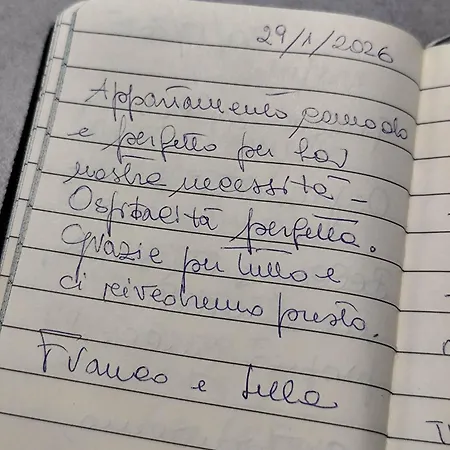 29/1/2026
Appartamento comodo
e perfetto per la
nostra necessità -
Ospitalità perfetta.
Grazie per tutto e
ci rivedremo presto.
Franco e Lella